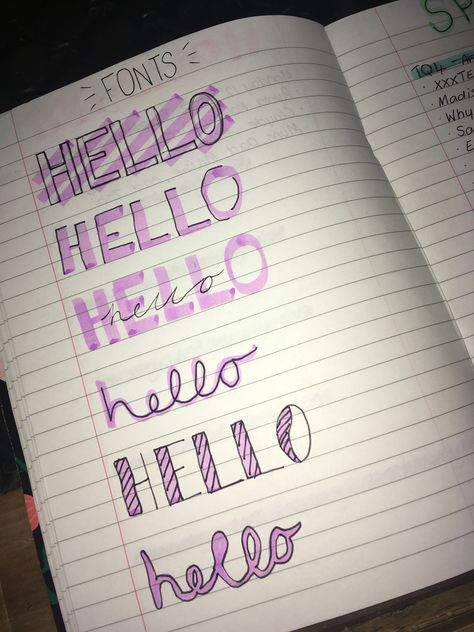 FONTS
HELLO
HELLO
HELLO
hello
hello
HELLO
hello
SP
TQ4 - Ar
· XXXTE
· Madis
· Why
· Sa
· E